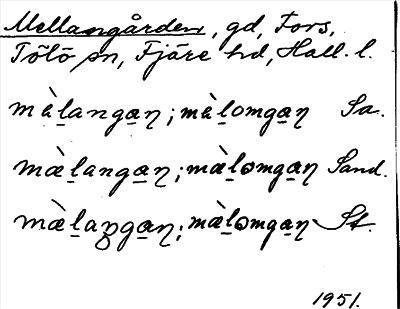 Mellangården, gd, Fors,
Tölö sn, Fjäre hd, Hall. l.
mæ̀l̠anga̠ɳ; mæ̀l̠omga̠ɳ Sa.
mæ̀l̠anga̠ɳ; mæ̀l̠omga̠ɳ Sand.
mæ̀l̠aŋga̠ɳ; mæ̀l̠omga̠ɳ St.
1951.